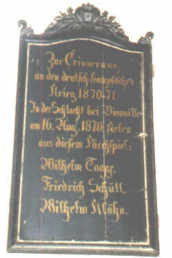 Zur Erinnerung
an den deutsch französischen
Krieg 1870-71.
In der Schlacht bei Vionville
am 16. Aug. 1870 fielen
aus diesem Kirchspiel:
Wilhelm
Friedrich Schütt
Wilhelm